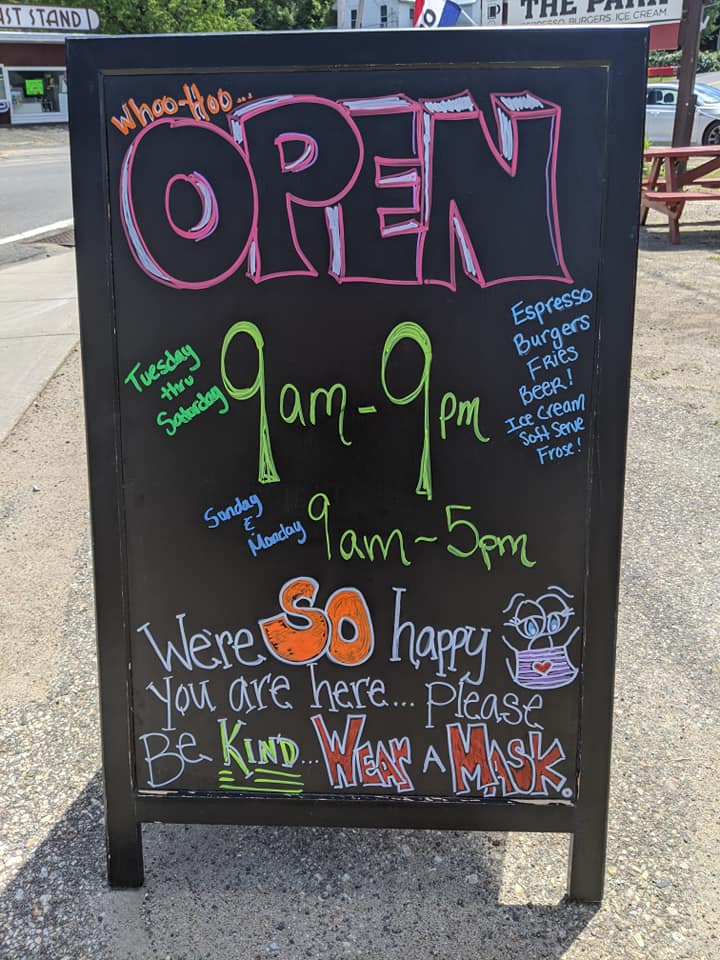 AST STAND
THE PARK
ESPRESSO BURGERS ICE CREAM
Whoo-Hoo...
OPEN
Tuesday
thru
Saturday
9am-9pm
Espresso
Burgers
Fries
Beer!
Ice Cream
Soft Serve
Frose!
Sunday
&
Monday
9am-5pm
We're SO happy
you are here... please
Be KIND... WEAR A MASK.